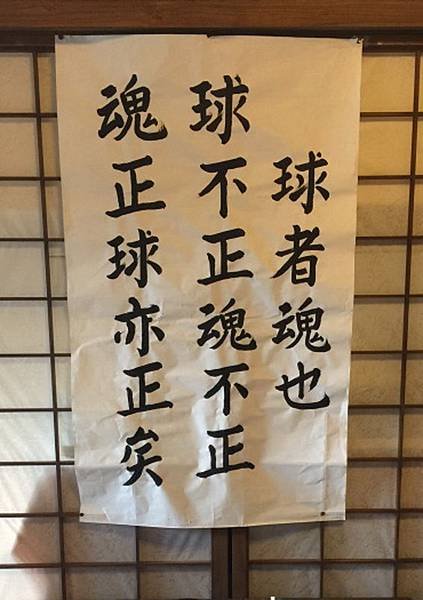 球者魂也
球不正魂不正
魂正球亦正矣